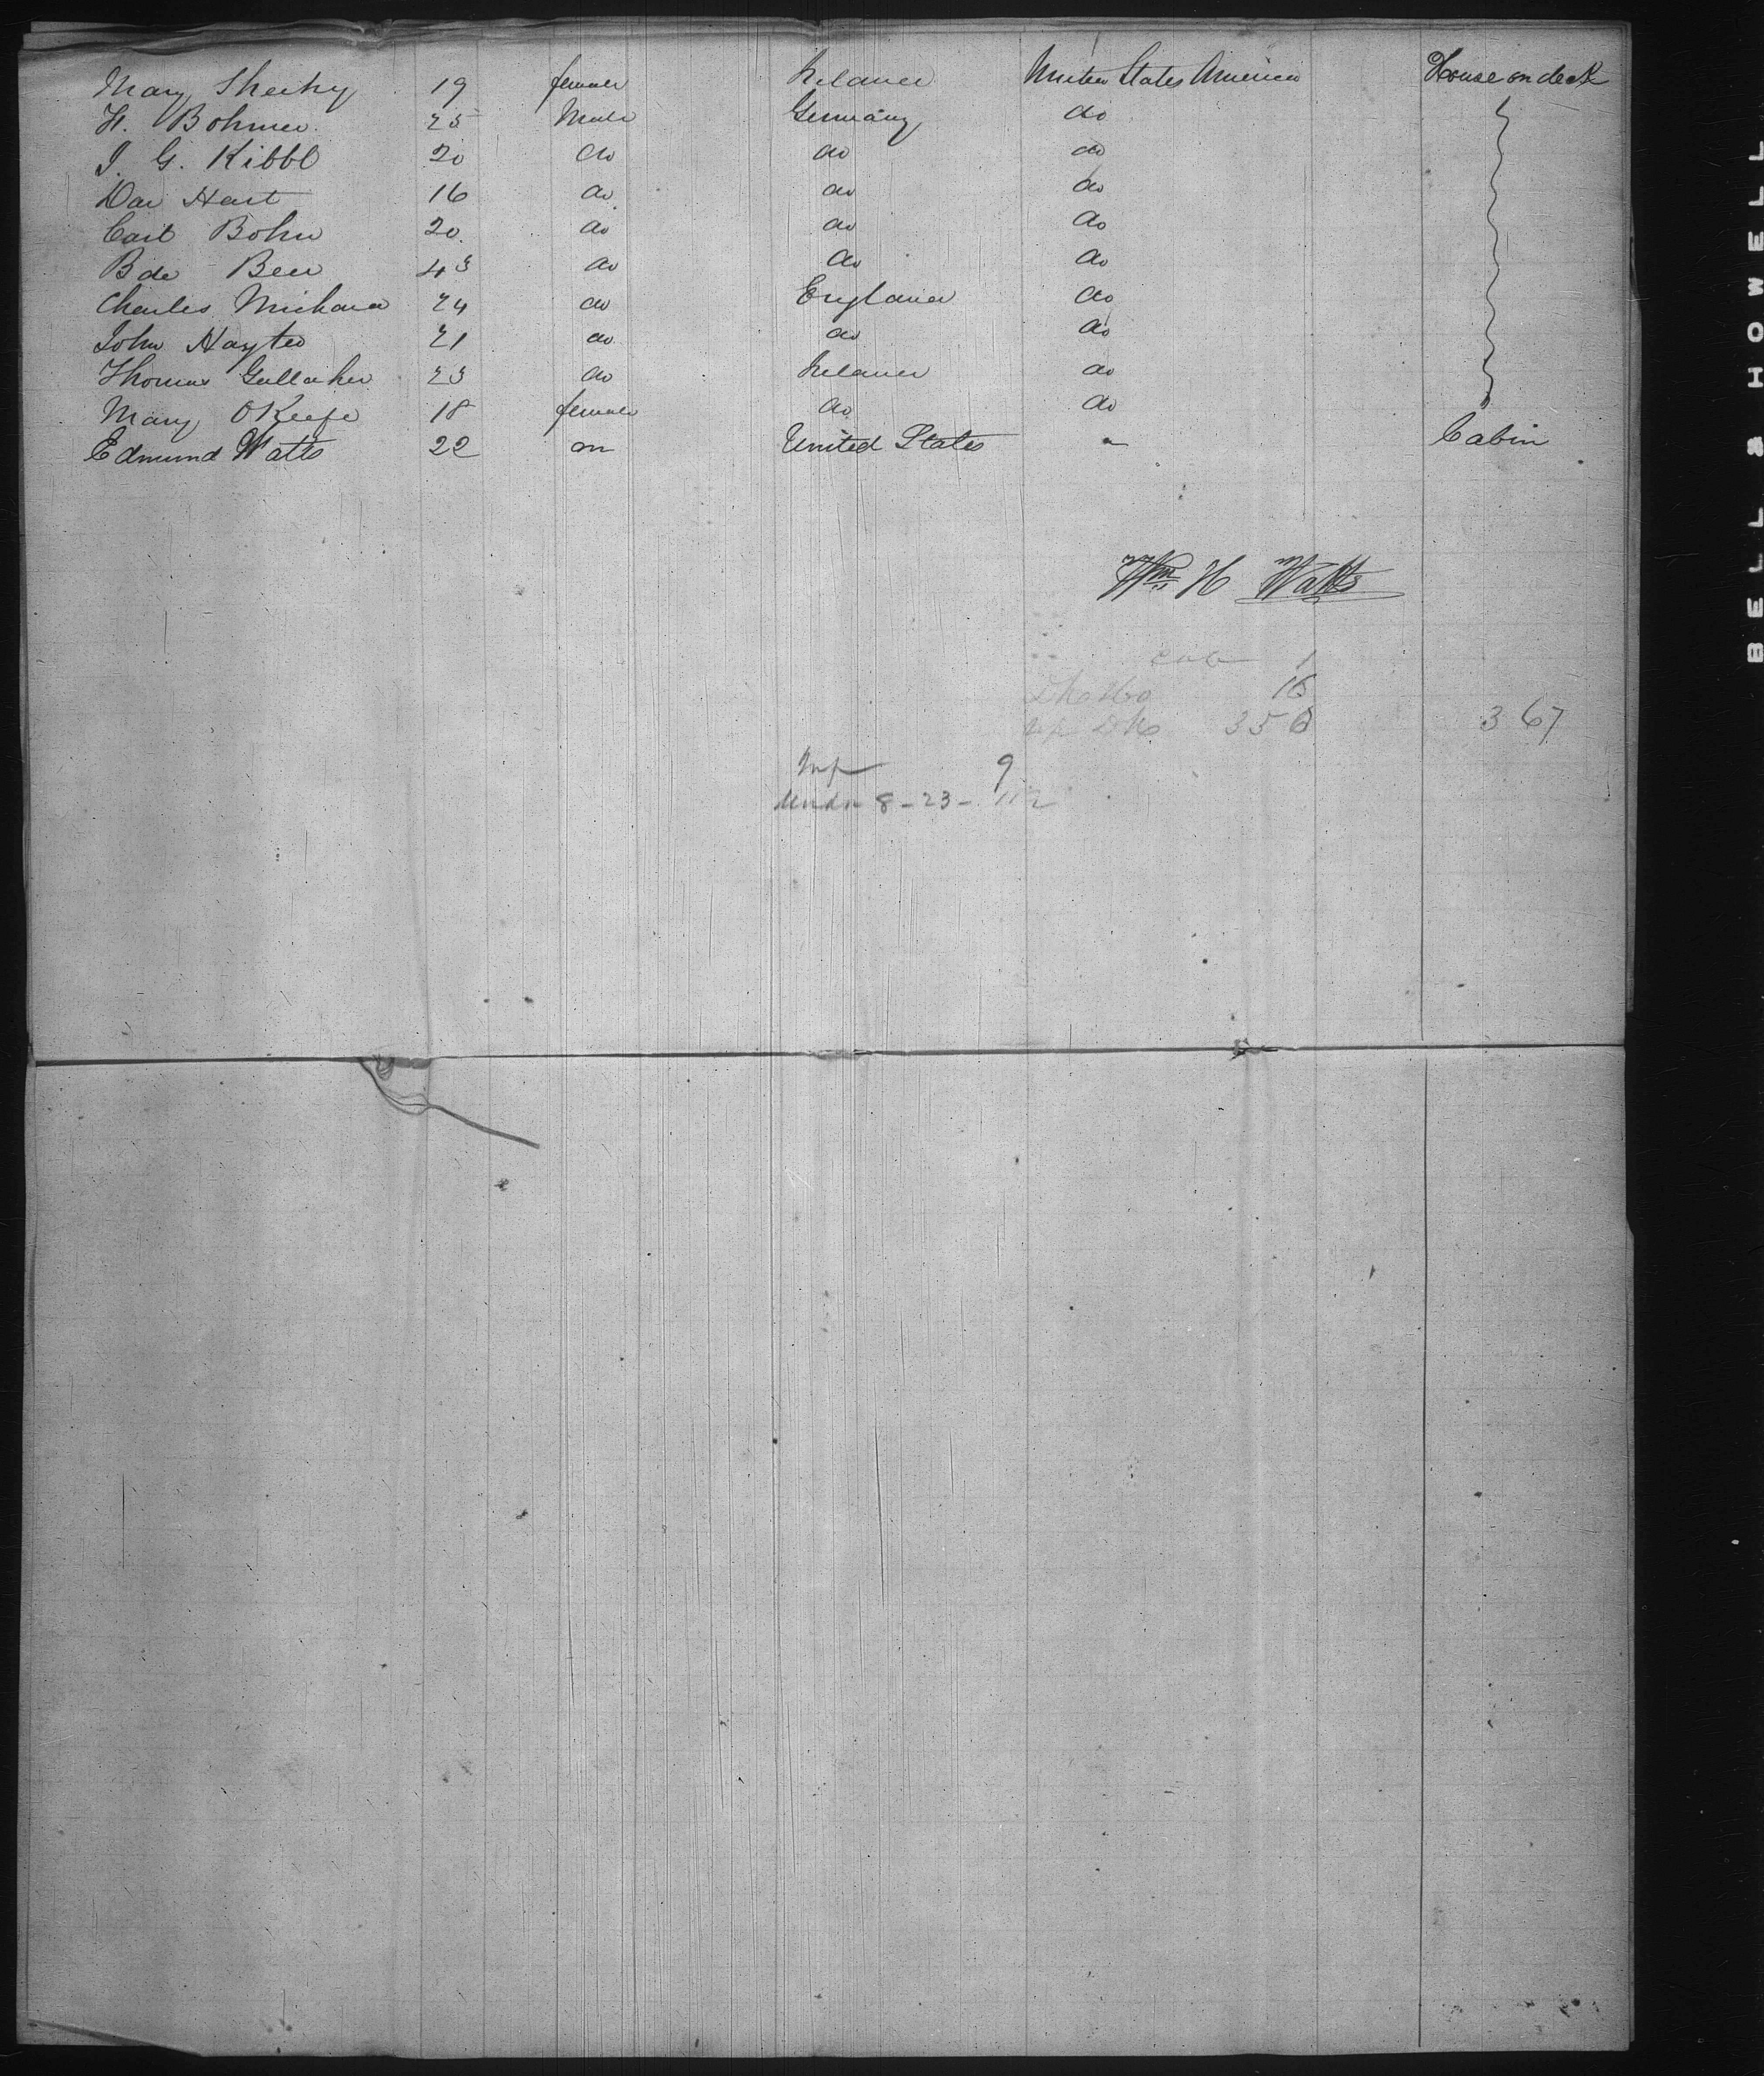 Mary Sheehy 19 female Ireland United States America House on deck
H. Bohmer 25 Male Germany do
J. G. Kibbl 20 do do do
Hart 16 do do do
Carl Bohn 20 do do do
B de Beer 43 do do do
Charles 24 do England do
John Hayter 21 do do do
Thomas Gallaher 23 do Ireland do
Mary OKeefe 18 female do do
Edmund Watts 22 m United States " Cabin
Wm H Watts
Cab 1
16
up Dk 350 367
Inf 9
Under 8 - 23 - 112
BELL & HOWELL